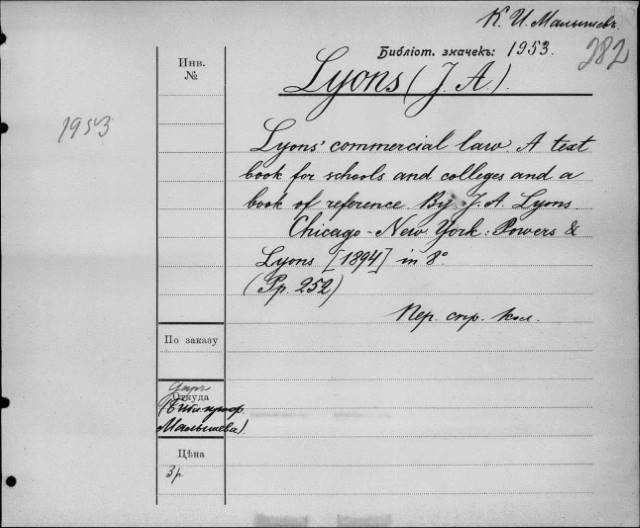 К. И. Малышевъ
Библіот. значекъ: 1953.
282
Инв.
№
Lyons (J. A.).
1953
Lyons' commercial law. A text
book for schools and colleges and a
book of reference. By J. A. Lyons.
Chicago - New York: Powers &
Lyons [1894] in 8°
(Pp. 252)
Пер. стр. кол.
По заказу
Откуда
(Библ. проф.
Малышева).
Цѣна
3 р.